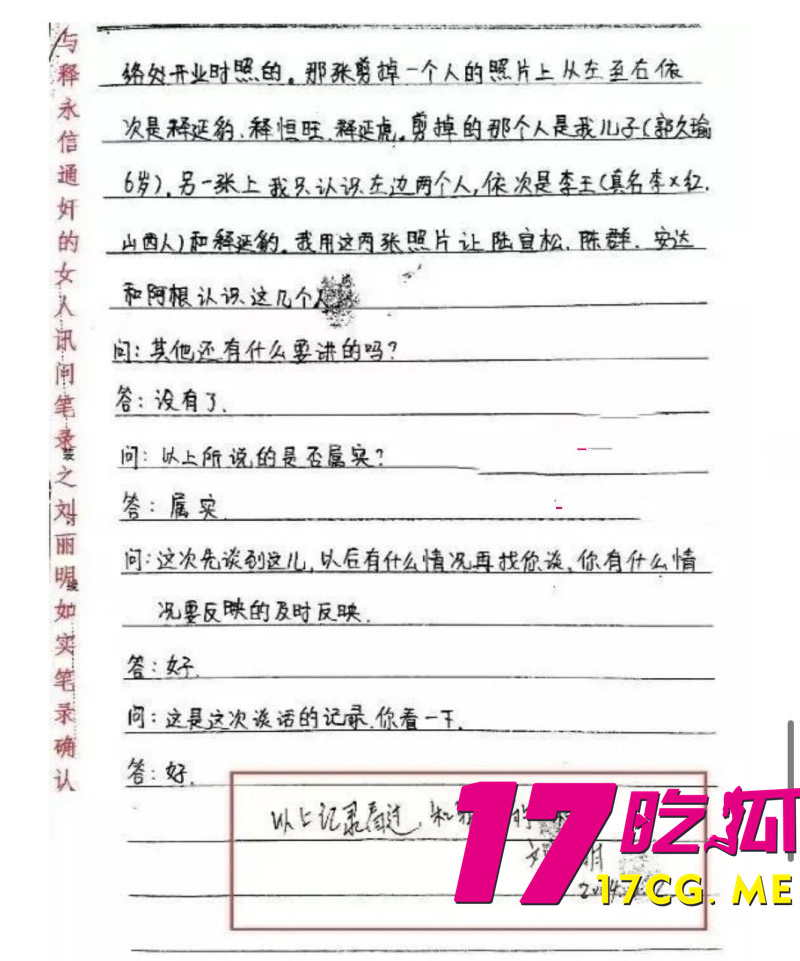 与释永信通奸的女人讯问笔录之刘丽明如实笔录确认
络处开业时照的。那张剪掉一个人的照片上从左至右依
次是释延豹、释恒旺、释延虎。剪掉的那个人是我儿子(郭久瑜
6岁)。另一张上我只认识左边两个人,依次是李王(真名李×红.
山西人)和释延豹。我用这两张照片让陆宜松、陈群、安达
和阿根认识这几个人
问:其他还有什么要讲的吗?
答:没有了.
问:以上所说的是否属实?
答:属实.
问:这次先谈到这儿,以后有什么情况再找你谈,你有什么情
况要反映的及时反映.
答:好.
问:这是这次谈话的记录.你看一下.
答:好.
以上记录看过,和我 的
刘 明
17吃狐
17CG.ME